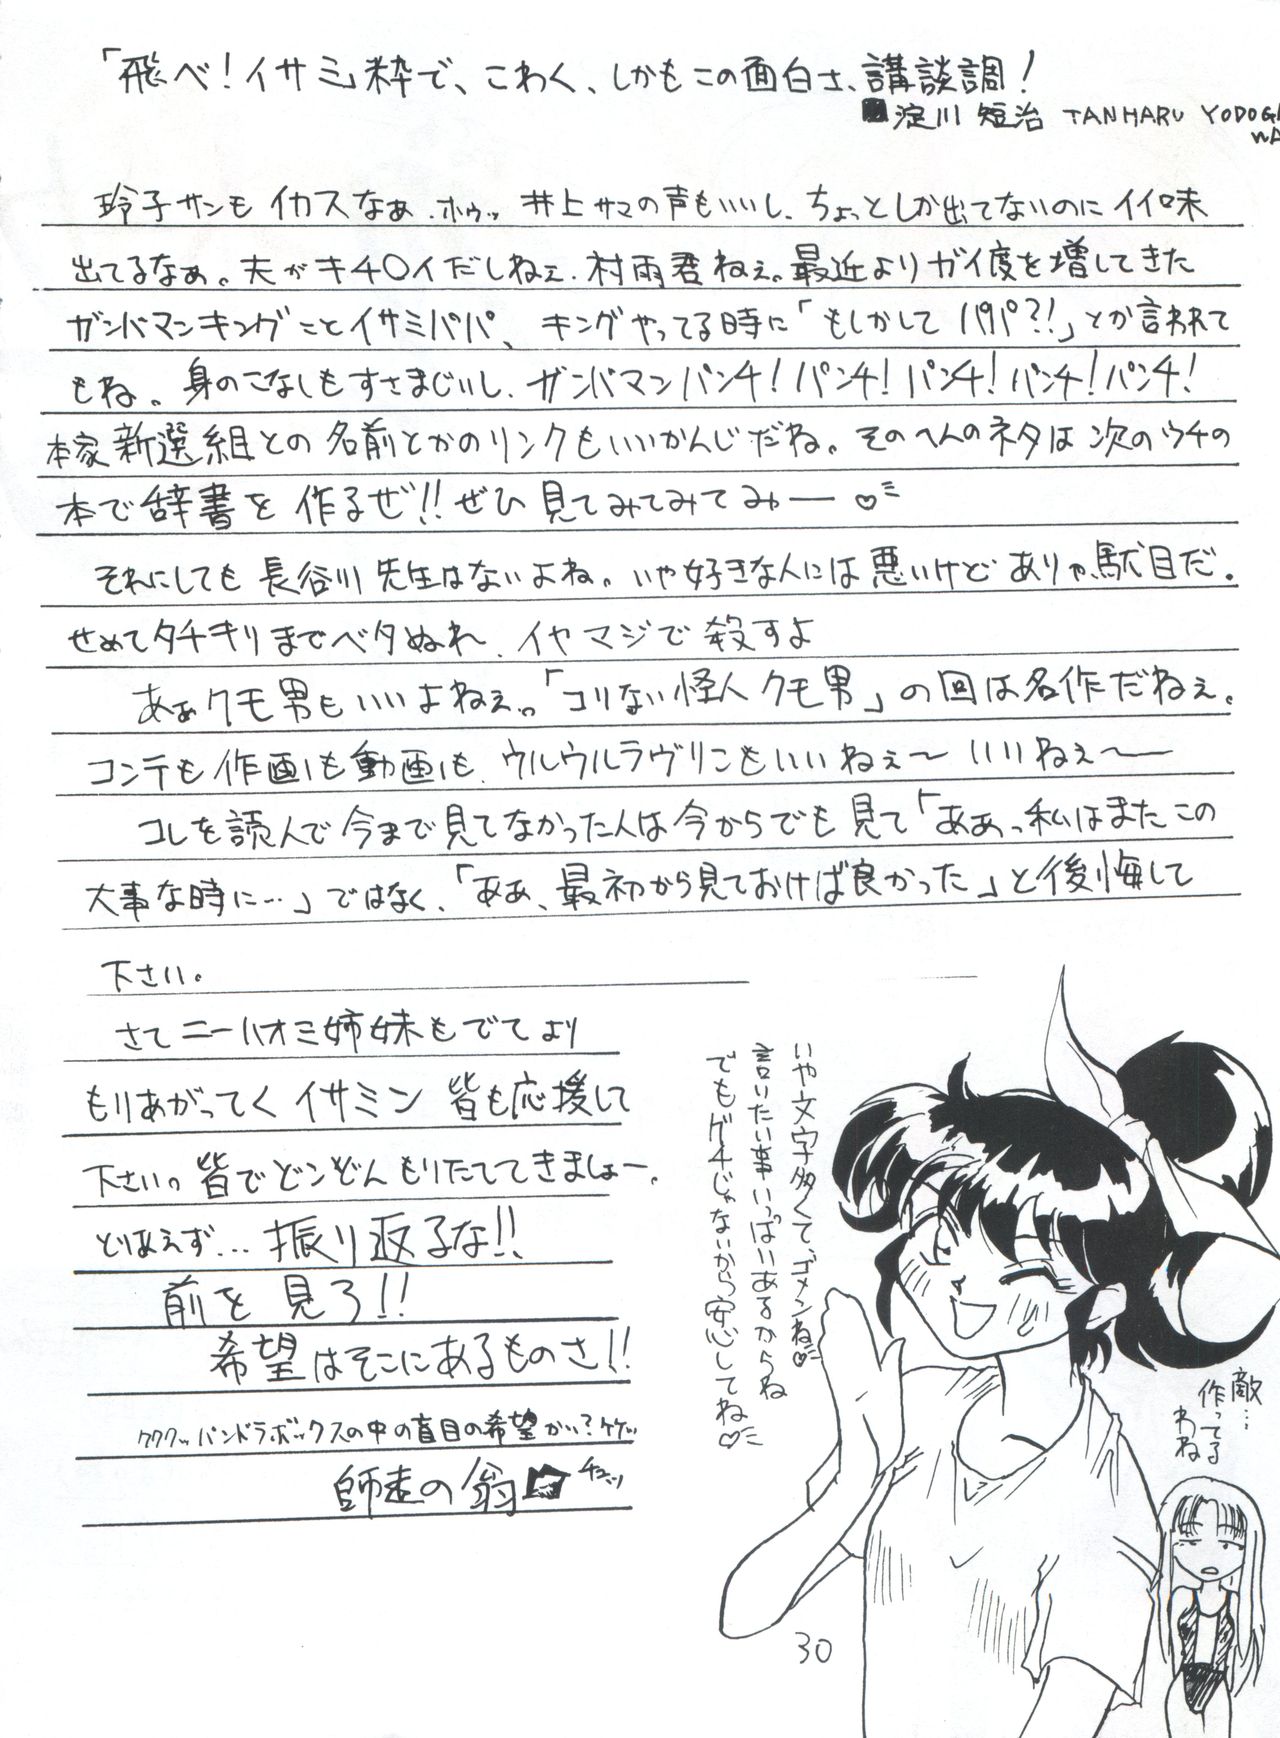 「飛べ！イサミ」粋で、こわく、しかもこの面白さ、講談調！
■淀川 短治 TANHARU YODOGAWA
玲子サンもイカスなぁ、ホゥッ 井上サマの声もいいし、ちょっとしか出てないのにイイ味
出てるなぁ。夫がキチ○イだしねぇ、村雨君ねぇ。最近よりガイ度を増してきた
ガンバマンキングことイサミパパ、キングやってる時に「もしかしてパパ?!」とか言われて
もね。身のこなしもすさまじいし、ガンバマンパンチ！パンチ！パンチ！パンチ！パンチ！
本家新選組との名前とかのリンクもいいかんじだね。そのへんのネタは次のウチの
本で辞書を作るぜ!!ぜひ見てみてみてみゅー♡
それにしても長谷川先生はないよね。いや好きな人には悪いけどありゃ駄目だ。
せめてタチキリまでベタぬれ、イヤマジで殺すよ
あぁクモ男もいいよねぇ。「コリない怪人クモ男」の回は名作だねぇ。
コンテも作画も動画も、ウルウルラヴリこもいいねぇ〜いいねぇ〜
コレを読んで今まで見てなかった人は今からでも見て「ああっ私はまたこの
大事な時に…」ではなく、「ああ、最初から見ておけば良かった」と後悔して
下さい。
さてニーハオミ姉妹もでてより
もりあがってくイサミン 皆も応援して
下さい。皆でどンどんもりたててきましょー。
とりあえず…振り返るな!!
前を見ろ!!
希望はそこにあるものさ!!
ククククッパンドラボックスの中の盲目の希望かい？ケケッ
師走の翁 チューッ
いや文字多くて、ゴメンね♡
言いたい事いっぱいあるからね
でもゲチじゃないから安心してね♡
敵…
作ってる
わね
30